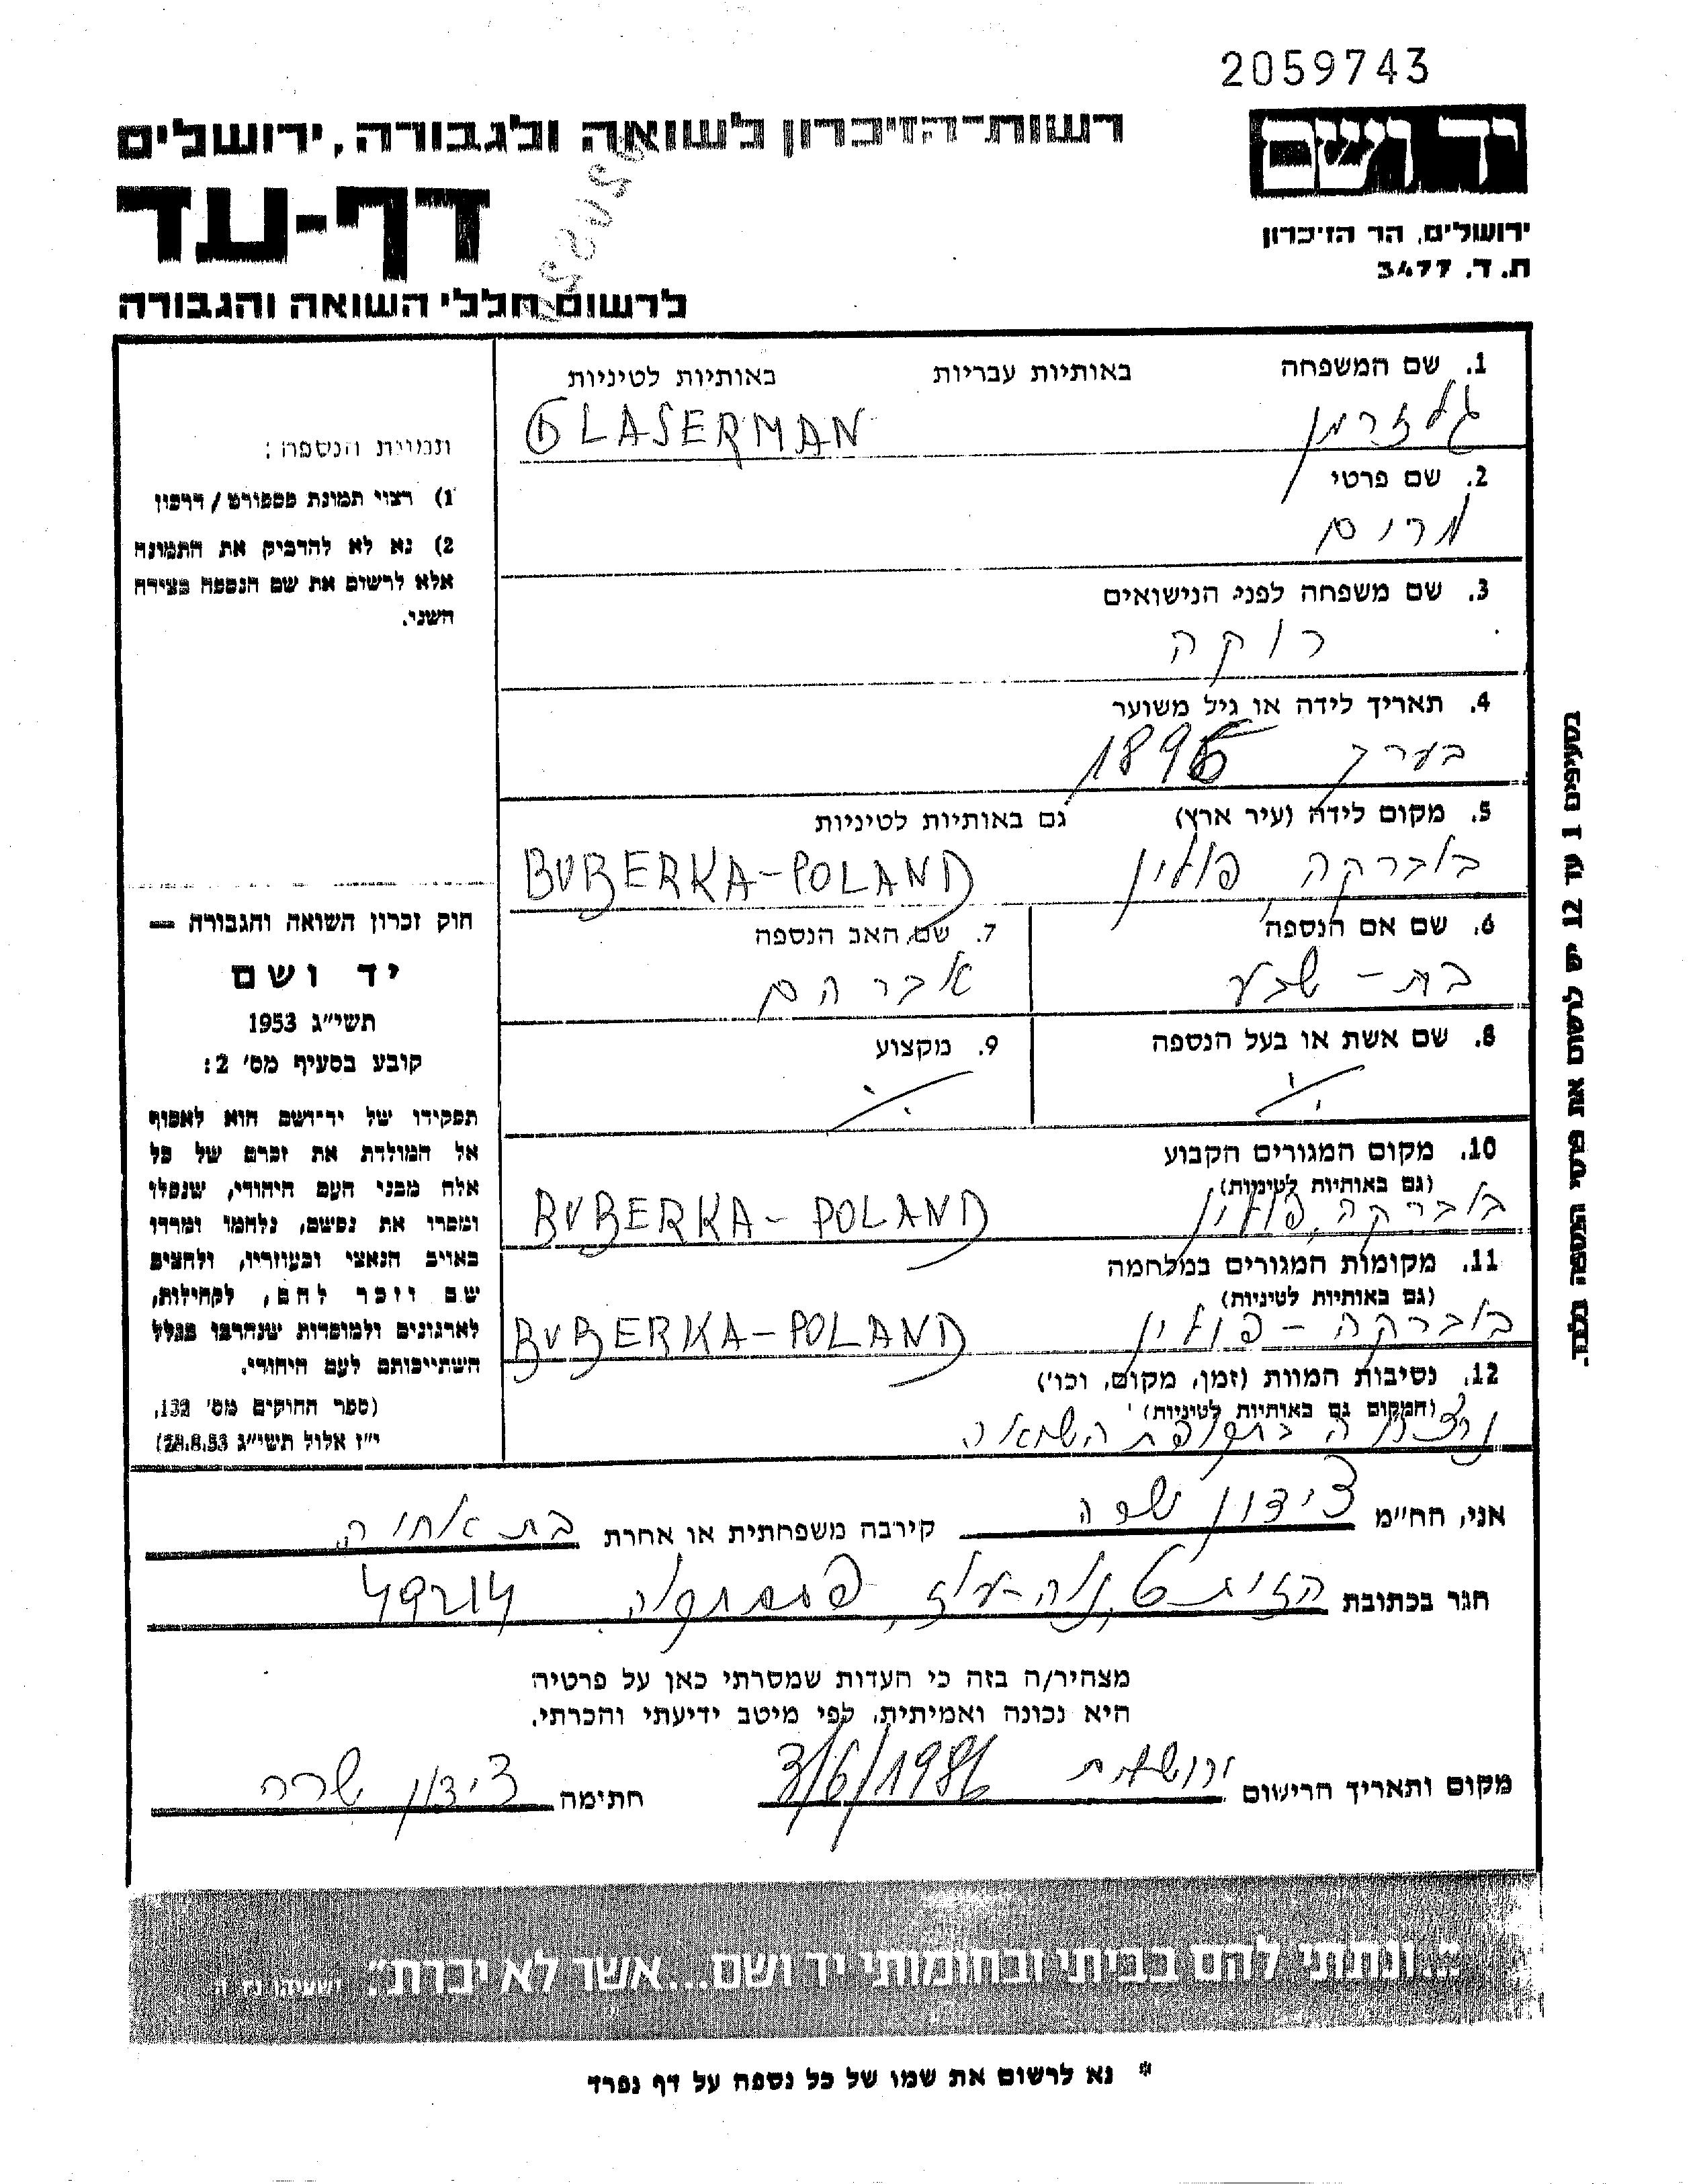 2059743
יד ושם
רשות-הזיכרון לשואה ולגבורה, ירושלים
דף-עד
ירושלים, הר הזיכרון
ת. ד. 3477
לרשום חללי השואה והגבורה
1. שם המשפחה באותיות עבריות באותיות לטיניות
גלזרמן GLASERMAN
2. שם פרטי
מרים
3. שם משפחה לפני הנישואים
רוקה
4. תאריך לידה או גיל משוער
בערך
5. מקום לידה (עיר ארץ) גם באותיות לטיניות
בוברקה פולין BUBERKA-POLAND
6. שם אם הנספה
בת-שבע
7. שם האב הנספה
אברהם
8. שם אשת או בעל הנספה
9. מקצוע
10. מקום המגורים הקבוע
(גם באותיות לטיניות)
בוברקה, פולין BUBERKA - POLAND
11. מקומות המגורים במלחמה
(גם באותיות לטיניות)
בוברקה - פולין BUBERKA - POLAND
12. נסיבות המוות (זמן, מקום, וכו')
(המקום גם באותיות לטיניות)
נרצחה בתקופת השואה
תמונת הנספה:
1) רצוי תמונת פספורט / דרכון
2) נא לא להדביק את התמונה
אלא לרשום את שם הנספה בצידה
השני.
חוק זכרון השואה והגבורה —
יד ושם
תשי"ג 1953
קובע בסעיף מס' 2:
תפקידו של יד-ושם הוא לאסוף
אל המולדת את זכרם של כל
אלה מבני העם היהודי, שנפלו
ומסרו את נפשם, נלחמו ומרדו
באויב הנאצי ובעוזריו, ולהציב
שם וזכר להם, לקהילות,
לארגונים ולמוסדות שנחרבו בגלל
השתייכותם לעם היהודי.
(ספר החוקים מס' 132,
י"ז אלול תשי"ג 28.8.53)
בסעיפים 1 עד 12 יש לרשום את פרטי הנספה בלבד.
אני, הח"מ צידון שרה קירבה משפחתית או אחרת בת אחיה
הגר בכתובת הזית 6, נוה-עוז, פתח תקוה 49214
מצהיר/ה בזה כי העדות שמסרתי כאן על פרטיה
היא נכונה ואמיתית, לפי מיטב ידיעתי והכרתי.
מקום ותאריך הרישום ירושלים 3/6/1986 חתימה צידון שרה
"...ונתתי להם בביתי ובחומותי יד ושם...אשר לא יכרת". ישעיהו נו, ה
* נא לרשום את שמו של כל נספה על דף נפרד